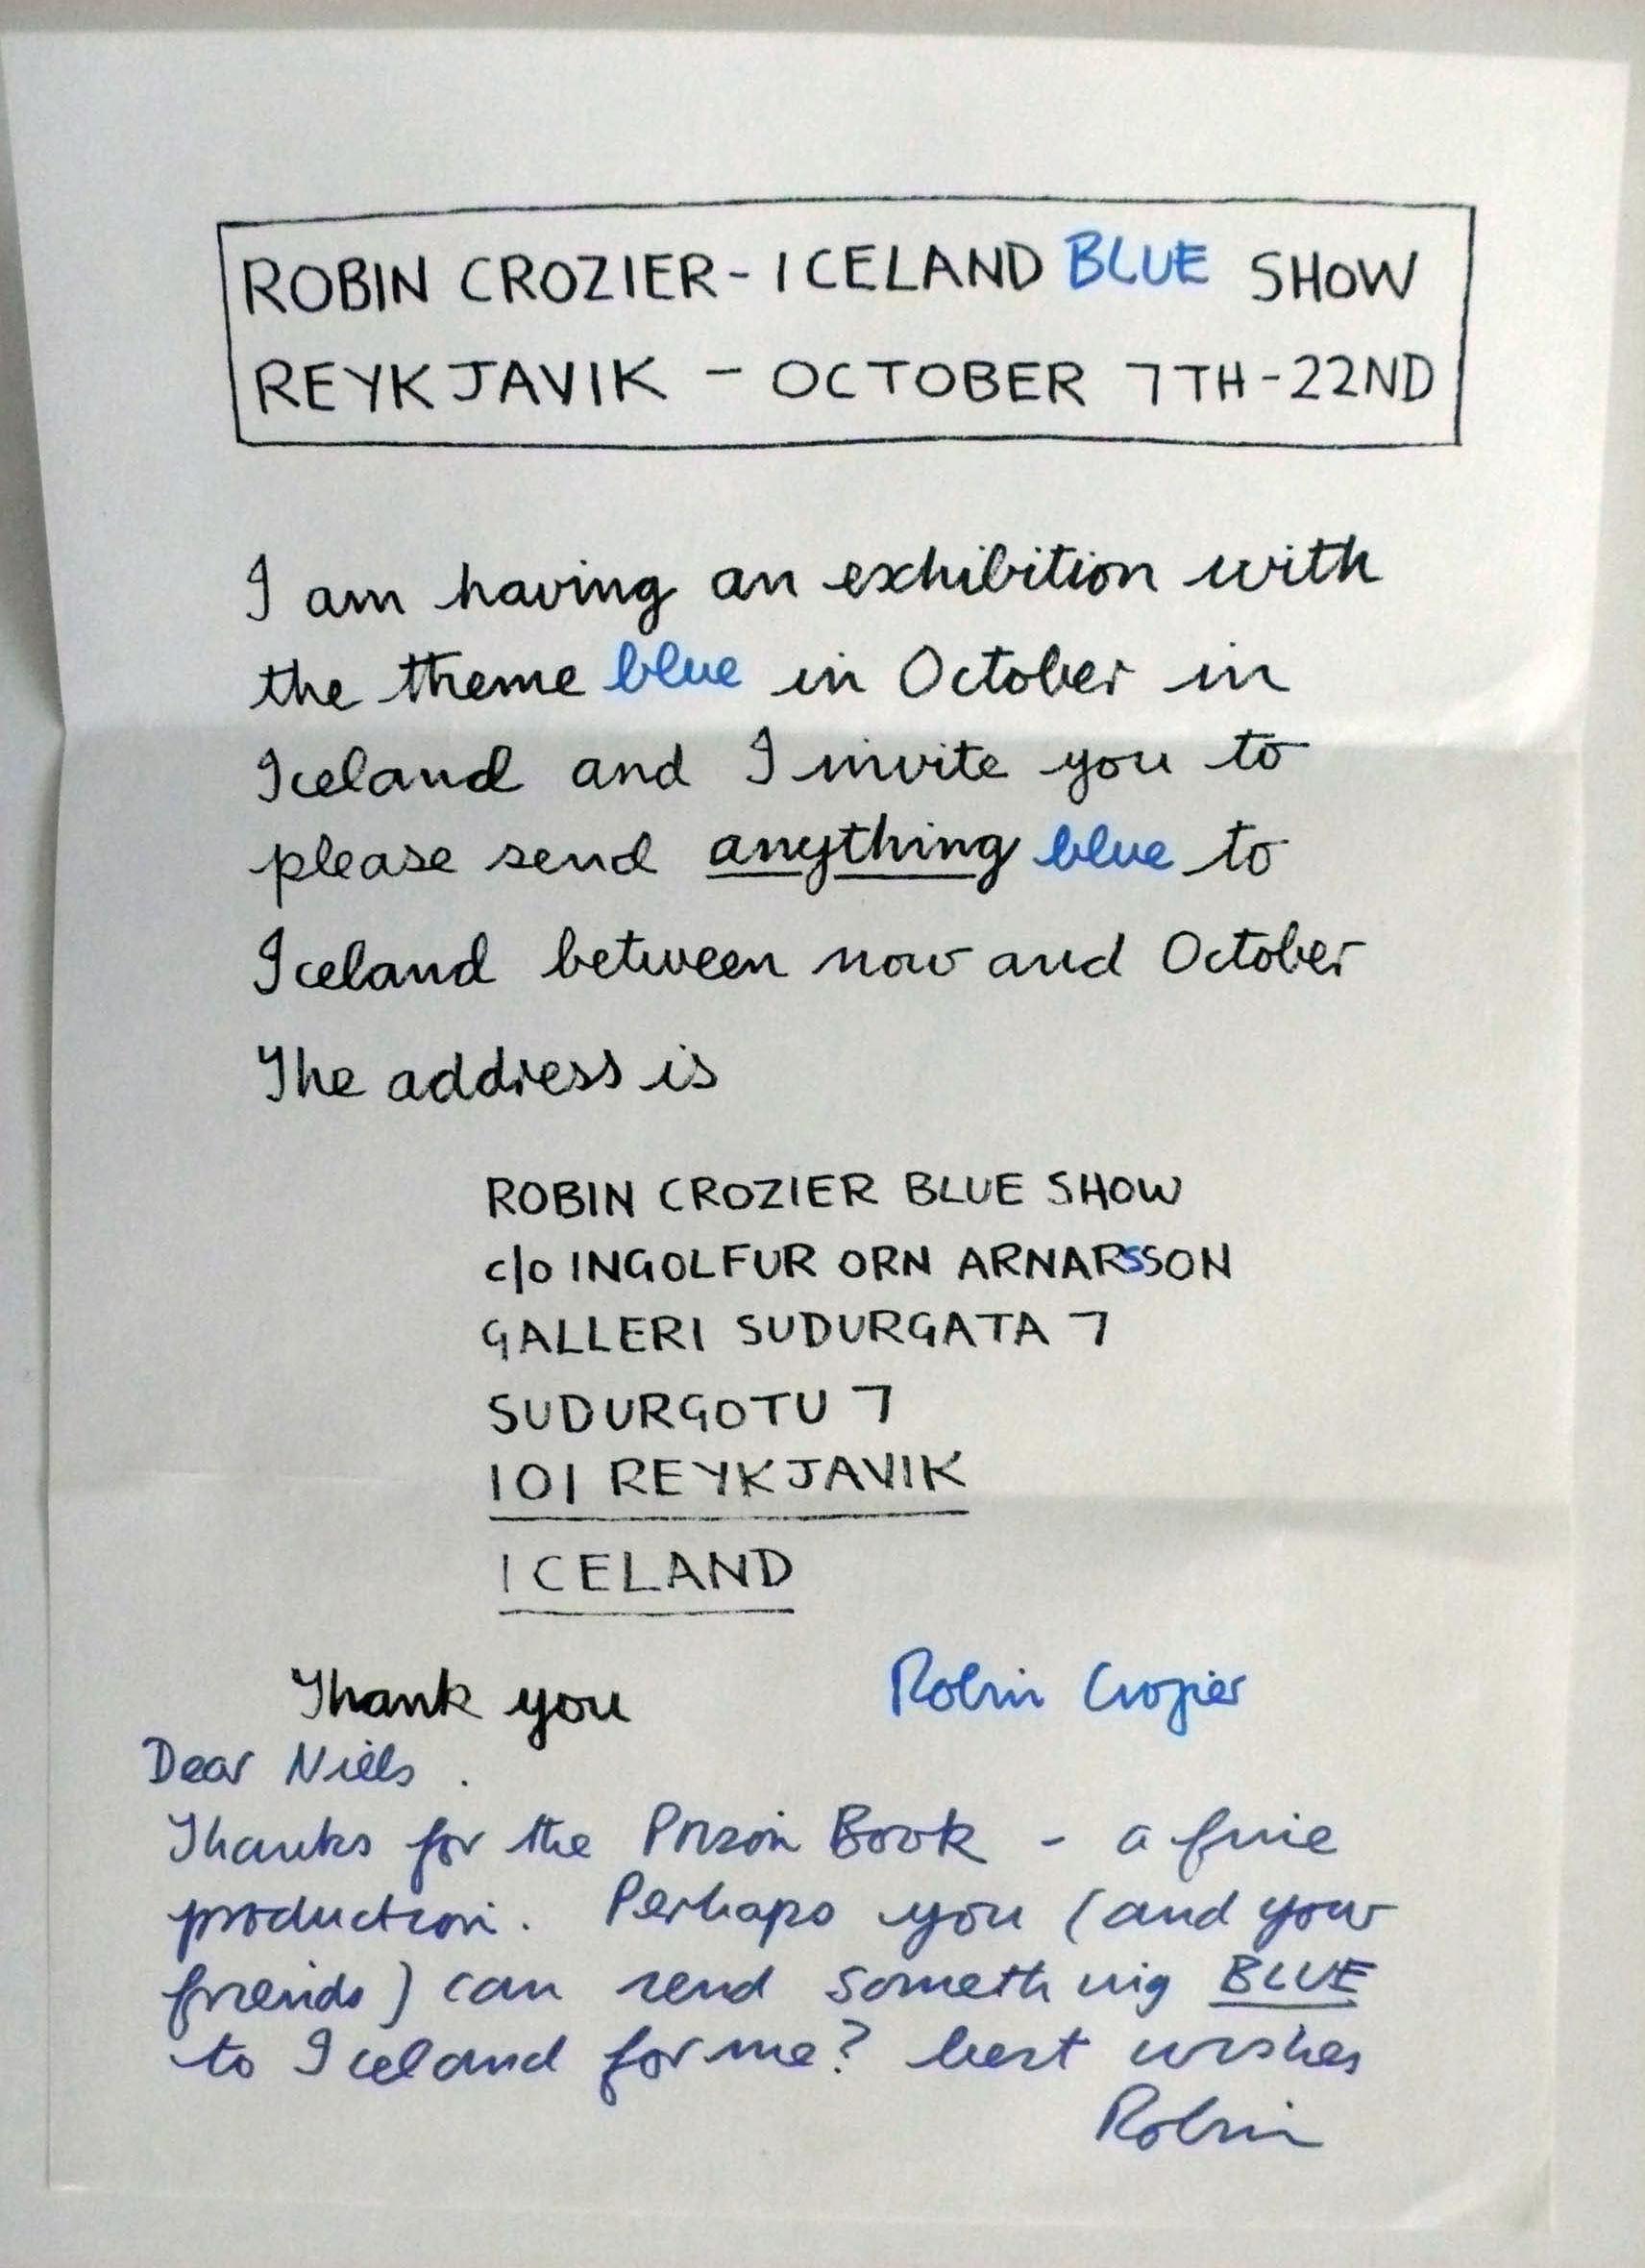 ROBIN CROZIER - ICELAND BLUE SHOW
REYKJAVIK - OCTOBER 7TH - 22ND
I am having an exhibition with
the theme blue in October in
Iceland and I invite you to
please send anything blue to
Iceland between now and October
The address is
ROBIN CROZIER BLUE SHOW
c/o INGOLFUR ORN ARNARSSON
GALLERI SUDURGATA 7
SUDURGOTU 7
101 REYKJAVIK
ICELAND
Thank you Robin Crozier
Dear Niels.
Thanks for the Prison Book - a fine
production. Perhaps you (and your
friends) can send something BLUE
to Iceland for me? best wishes
Robin